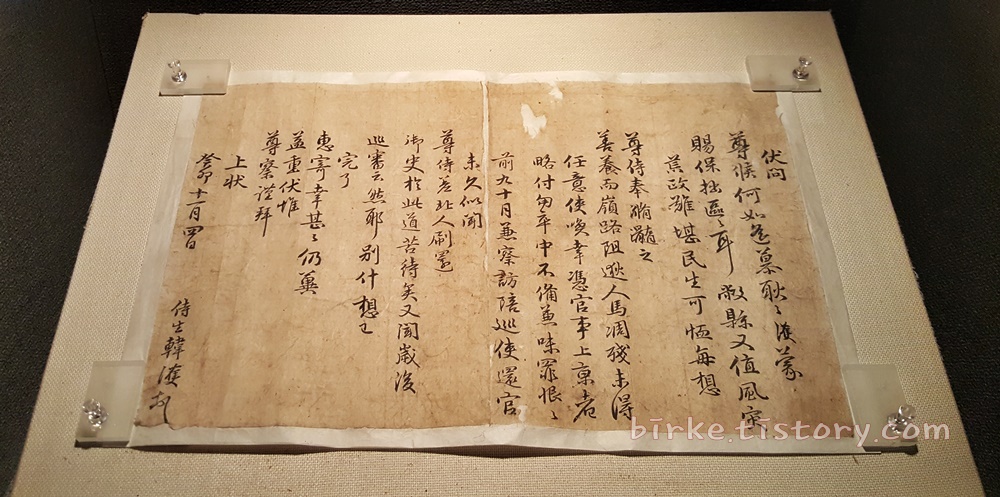 伏問
尊候何如遙慕耿〻濩蒙
賜保拙區〻耳 敝縣又值風灾
荒政難堪民生可恤每想
尊侍奉滫瀡之
善養而嶺路阻逖人馬凋殘未得
任意使喚幸憑官事上京者
略付匆卒中不備兼味罪恨〻
前九十月兼察訪陪巡使還官
未久似聞
尊侍差北人刷還
御史於此道苦待矣又聞歲後
巡審云然耶 別什想已
完了
惠寄幸甚〻仍冀
益重伏惟
尊察謹拜
上狀
癸卯十一月四日
侍生韓濩
birke.tistory.com